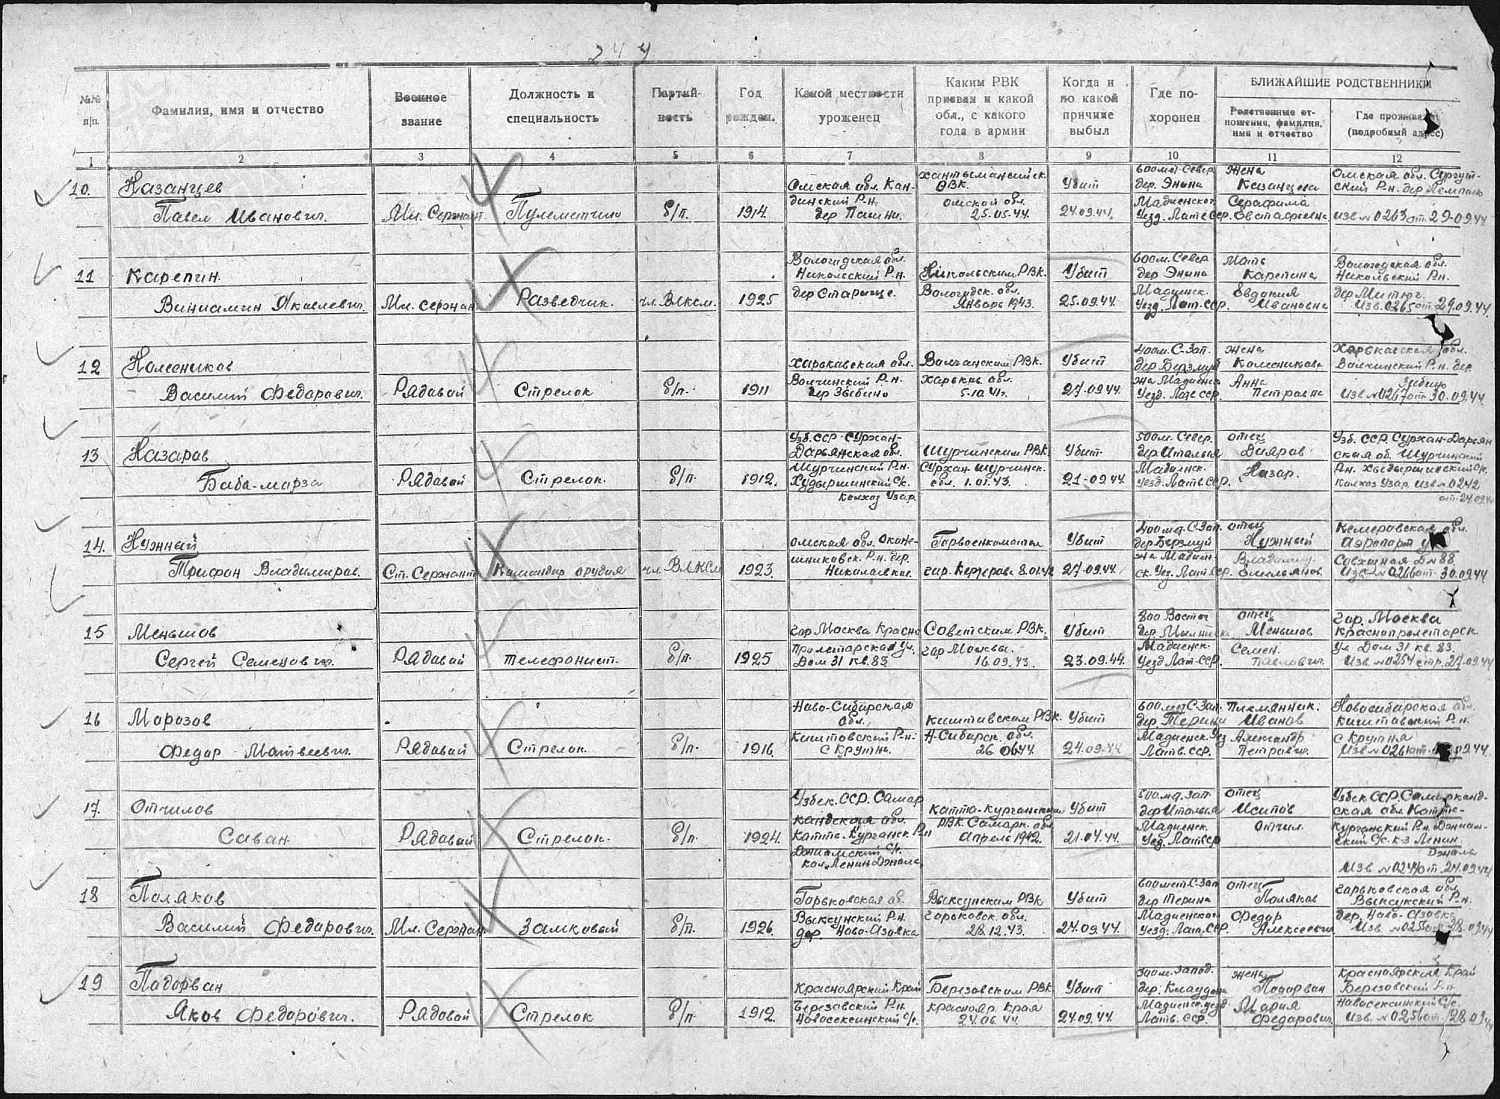 244
№№ п/п.
Фамилия, имя и отчество
Военное звание
Должность и специальность
Партий-ность
Год рожден.
Какой местности уроженец
Каким РВК призван и какой обл., с какого года в армии
Когда и по какой причине выбыл
Где по-хоронен
БЛИЖАЙШИЕ РОДСТВЕННИКИ
Родственные от-ношения, фамилия, имя и отчество
Где прожива (подробный адрес)
1 2 3 4 5 6 7 8 9 10 11 12
10. Казанцев
Павел Иванович.
Мл. Сержант
Пулеметчик
б/п.
1914.
Омская обл. Кан-
динский Р.н.
Хантыманийск.
РВК.
Омской обл.
25.05.44.
Убит
24.09.44.
600 мет. Север
дер. Энына
Мадиенског.
Уезд. Латв. ССР.
Жена
Казанцева
Серафима
Евстафиевна
Омская обл. Сургут-
ский Р.н. дер.
Изв № 0263 от 29-09.44
11 Карепин.
Виниамин Яковлевич.
Мл. Сержант
Разведчик.
чл. ВЛКСМ.
1925
Вологодская обл.
Никольский Р.н.
дер Старыгце.
Никольским РВК.
Вологодск. обл.
Январь 1943.
Убит
25.09.44.
600м. Север
дер Энына
Мадиенск.
Уезд. Лат. ССР.
Мать
Карепина
Евдокия
Ивановна
Вологодская обл.
Никольский Р.н.
дер Митюг.
Изв. 0265 от 29.09.44.
12 Колесников
Василий Федорович.
Рядовой
Стрелок
б/п.
1911
Харьковская обл.
Волчинский Р.н.
дер Збыбино
Волчанским РВК.
Харьков обл.
5-10 41г.
Убит
27.09.44.
400м. С. Зап.
дер. Берзмуй
жа Мадиенс
Уезд. Латв. ССР.
жена
Колесникова
Анна
Петровна
Харьковская обл.
Волчинский Р.н. дер
Изв № 0267 от 30.09.44
13 Назаров
Баба-мирза
Рядовой
Стрелок.
б/п.
1912.
Узб. ССР. Сурхан-
Дарьянская обл.
Шурчинский Р.н.
Худыршинский с/с.
Колхоз Узар.
Шурчинским РВК.
Сурхан Шурчинск.
обл. 1.01.43.
Убит.
21-09 44
500м. Север.
дер. Италия
Мадиенск.
Уезд. Латв. ССР.
отец
Дояров
Назар.
Узб. ССР. Сурхан-Дарьян
ская об. Шурчинский
Рн. Худыршинский с/с.
Колхоз Узар. Изв № 0242
от. 24.09.44
14. Нужный
Трифон Владимиров.
Ст. Сержант
Командир орудия
чл. ВЛКСМ
1923.
Омская обл. Оконе-
шниковск. Р.н. дер.
Николаевка.
Горвоенкоматом
гор. Кемерово 8.01.42
Убит
27.09.44.
400 мд. С. Зап.
дер. Берзмуй
жа Мадиен-
ск. Уез. Лат. ССР.
отец
Нужный
Владимир.
Емельянов.
Кемеровская обл.
Аэропорт
Совхозная Д № 88.
Изв № 0266 от. 30.09.44
15 Меньшов
Сергей Семенович.
Рядовой
телефонист.
б/п.
1925
гор Москва Красно
Пролетарская ул.
Дом 31 кв. 83
Советским РВК.
гор Москвы.
16.09.43.
Убит
23.09.44.
800 Восточ
Мадиенск.
Уезд Лат. ССР.
отец
Меньшов
Семен.
Павлович.
гор. Москва
Краснопролетарск.
Ул. Дом 31 кв. 83.
Изв № 0254 27.09.44
16 Морозов
Федор Матвеевич.
Рядовой
Стрелок.
б/п.
1916.
Ново-Сибирская
обл.
Киштовский Р.н-
с Крутиха.
Киштовским РВК.
Н. Сибирск. обл.
26 06 44.
Убит
24.09.44
600мет С-Зап.
дер. Терини
Мадиенск. Уез
Латв. ССР.
Племянник.
Иванов
Александр
Петрович.
Новосибирская об.
Киштовский Р.н.
с Крутиха
Изв № 0261 от. 09.44.
17. Отчилов
Саван.
Рядовой
Стрелок.
б/п.
1924.
Узбек. ССР. Самар
кандская обл.
Катта-Курганск Рн
Дэнамский с/с.
кол. Ленин Дэнала
Катта-Курганским
РВК Самарк. обл.
Апрель 1942.
Убит
21.04.44.
500мд. зап.
дер Италия
Мадиенск.
Уез. Лат ССР
отец
Исипов
Отчил.
Узбек ССР. Самарканд-
ская обл Катта-
Курганский Р.н. Дэнам-
ский с/с. к-з Ленин
Дэнала
Изв № 0240 от. 24.09.44
18 Поляков
Василий Федорович.
Мл. Сержант
Замковый
б/п.
1926.
Горьковская об.
Выксунский Р.н.
дер. Ново-Азовка
Выксунским РВК
Горьковск. обл.
28.12.43.
Убит
24.09.44.
600мет С-Зап
дер Терина
Мадиенског
Уезд. Лат. ССР.
отец
Поляков
Федор
Алексеевич
Горьковская обл
Выксунский Р.н.
дер. Ново-Азовка
Изв. № 0255 от 28.09.44
19 Подорван
Яков Федорович.
Рядовой
Стрелок
б/п.
1912.
Красноярский Край
Березовский Р.н.
Новосексинский с/с.
Березовским РВК
Краснояр. края
24.06 44.
Убит
24.09.44
300м. запад.
Мадиенск. уезд
Латв. ССР.
жена
Подорван
Мария
Федорович
Красноярский Край
Березовский Р.н.
Новосексинский с/с.
Изв. № 0256 от 28.09.44